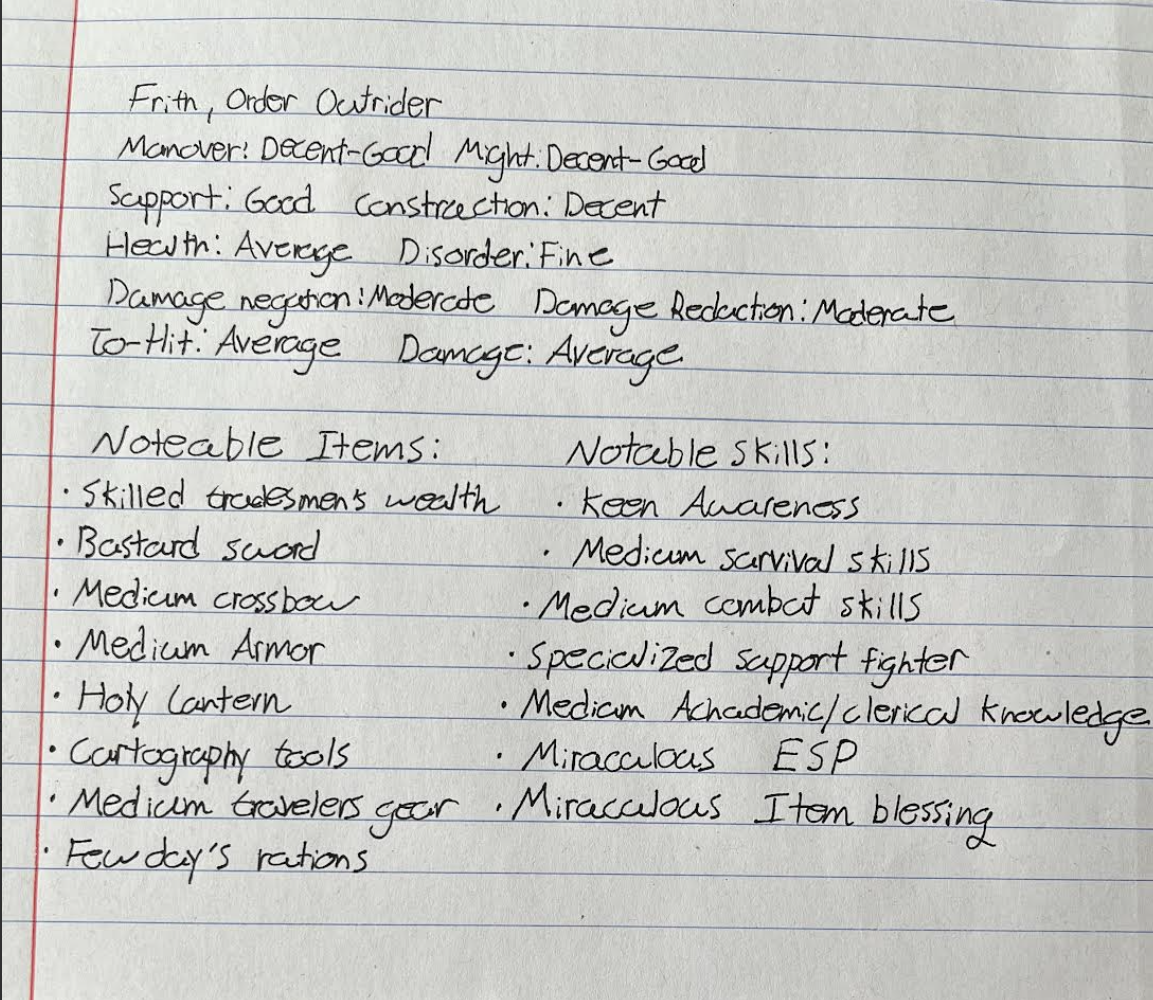 Frith, Order Outrider
Manover: Decent-Good Might: Decent-Good
Support: Good Construction: Decent
Health: Average Disorder: Fine
Damage negation: Moderate Damage Reduction: Moderate
To-Hit: Average Damage: Average
Noteable Items: Notable Skills:
· Skilled tradesmen's wealth · Keen Awareness
· Bastard sword · Medium survival skills
· Medium crossbow · Medium combat skills
· Medium Armor · Specialized support fighter
· Holy Lantern · Medium Achademic/clerical knowledge
· Cartography tools · Miraculous ESP
· Medium travelers gear · Miraculous Item blessing
· Few day's rations